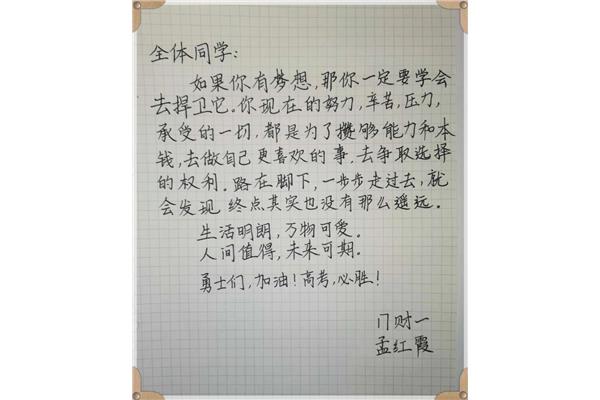 全体同学：
如果你有梦想，那你一定要学会
去捍卫它。你现在的努力，辛苦，压力，
承受的一切，都是为了攒够能力和本
钱，去做自己更喜欢的事，去争取选择
的权利。路在脚下，一步步走过去，就
会发现 终点其实也没有那么遥远。
生活明朗，万物可爱。
人间值得，未来可期。
勇士们，加油！高考，必胜！
门财一
孟红霞